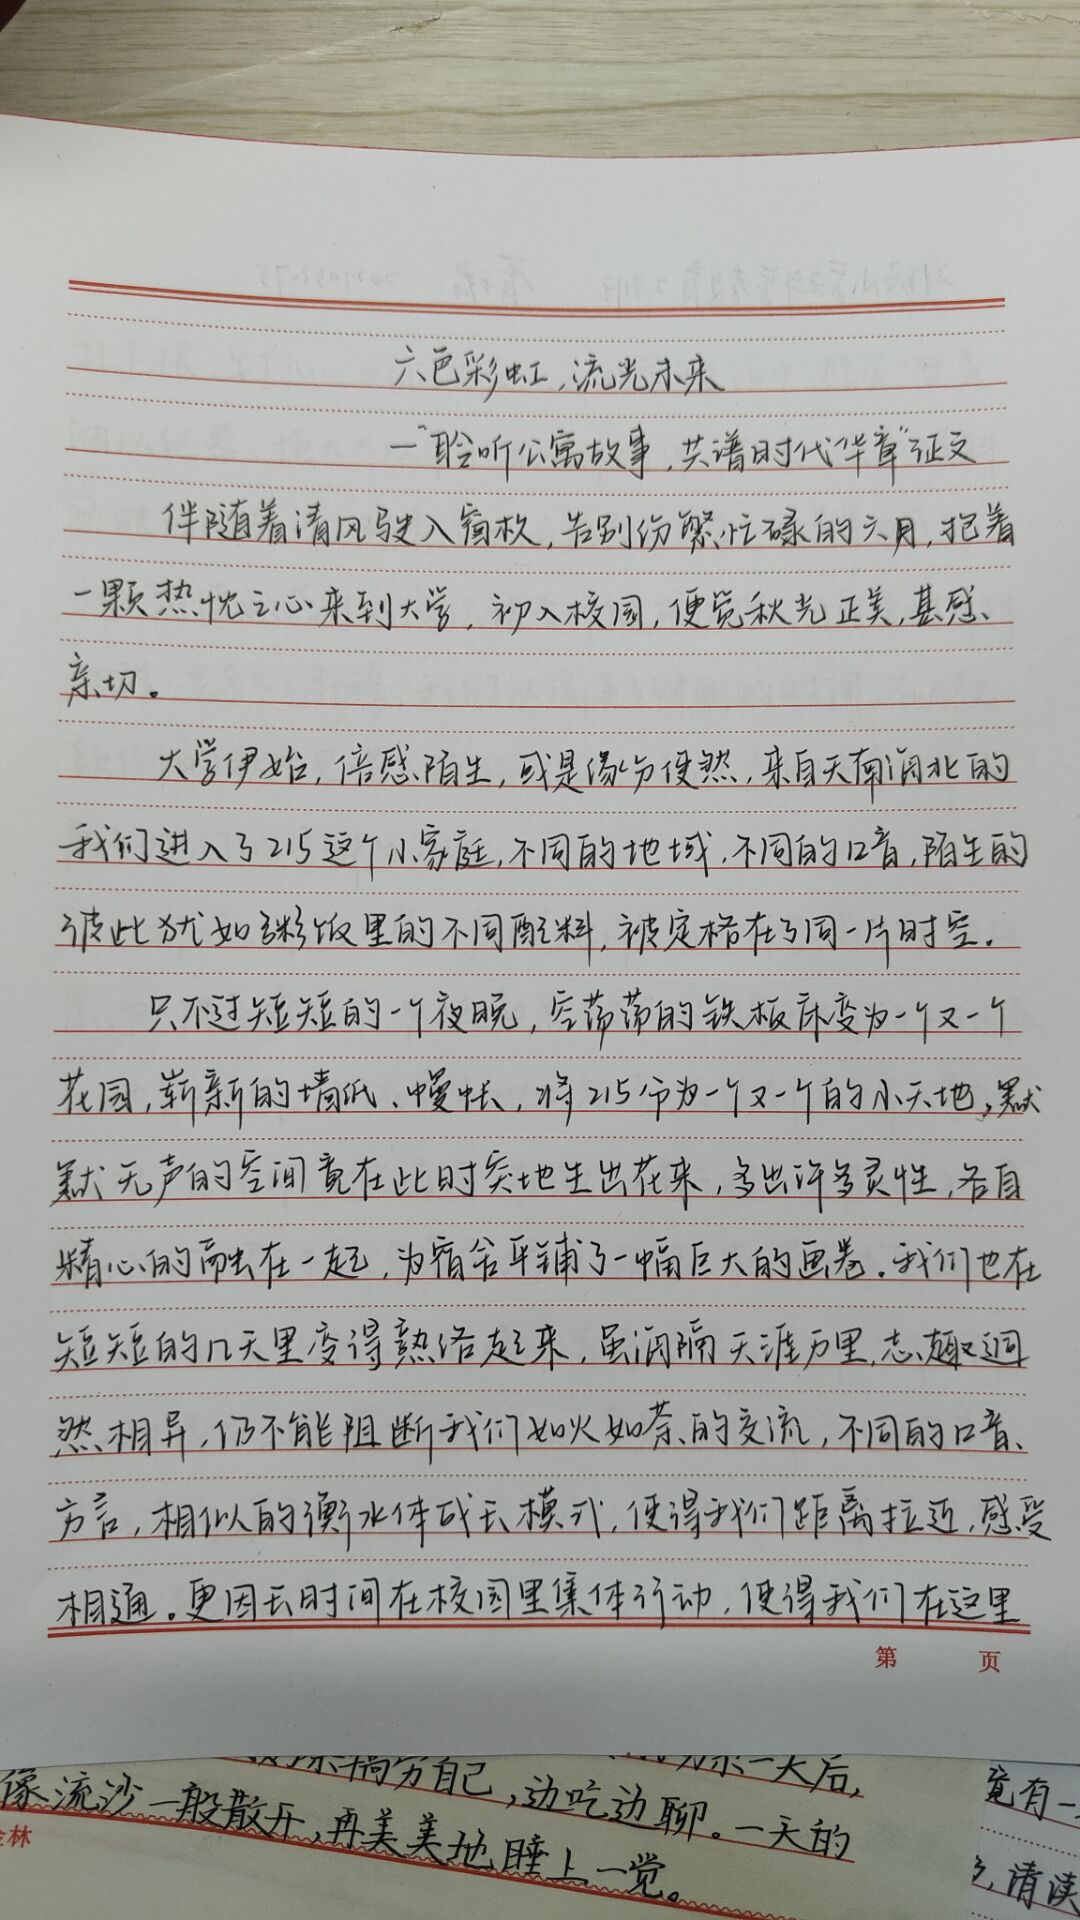 六色彩虹,流光未来
一“聆听公寓故事,共谱时代华章”征文
伴随着清风驶入窗枚,告别纷繁忙碌的六月,抱着
一颗热忱之心来到大学,初入校园,便觉秋光正美,甚感
亲切。
大学伊始,倍感陌生,或是缘分使然,来自天南海北的
我们进入了215这个小家庭,不同的地域,不同的口音,陌生的
彼此犹如饭里的不同配料,被定格在了同一片时空.
只不过短短的一个夜晚,空荡荡的铁板床变为一个又一个
花园,崭新的墙纸、幔帐,将215分为一个又一个的小天地,默
默无声的空间竟在此时突地生出花来,多出许多灵性,各自
精心的融在一起,为宿舍平铺了一幅巨大的画卷.我们也在
短短的几天里变得熟络起来,虽海隔天涯万里,志趣迥
然相异,仍不能阻断我们如火如荼的交流,不同的口音、
方言,相似的衡水体成长模式,使得我们距离拉近,感受
相通。更因长时间在校园里集体行动,使得我们在这里
第 页
搞劳自己,边吃边聊。一天的
一天后,
像流沙一般散开,再美美地睡上一觉。
竟有一
清淡